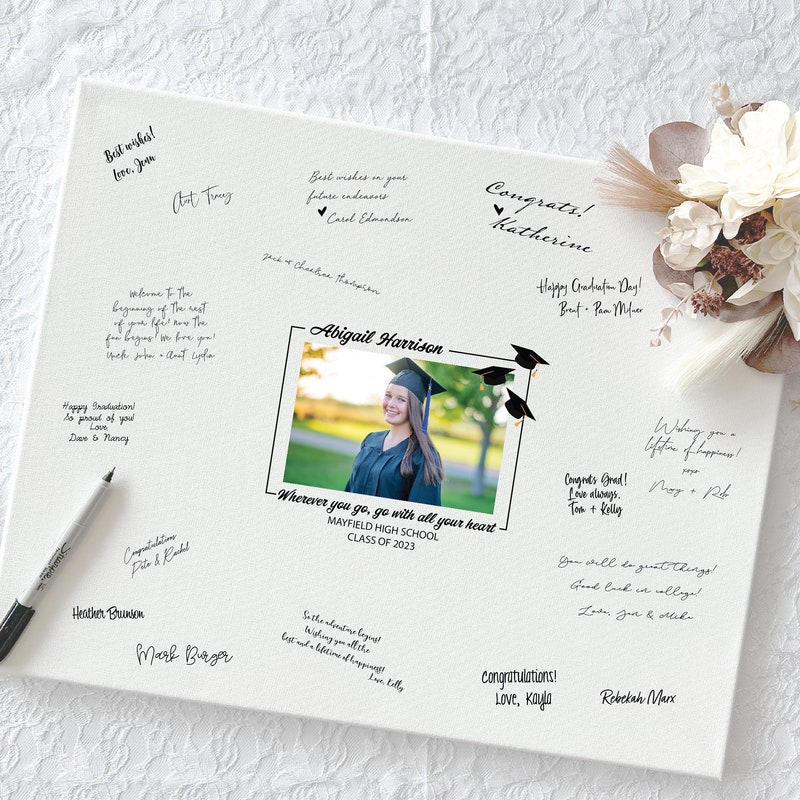 Best wishes!
Love, Jenn
Aunt Tracy
Best wishes on your
future endeavors
Carol Edmondson
Congrats!
Katherine
Jack + Chealsea Thompson
Happy Graduation Day!
Brent + Pam Milner
Welcome to the
beginning of the rest
of your life! Now the
fun begins! We love you!
Uncle John + Aunt Lydia
Abigail Harrison
Happy Graduation!
So proud of you!
Love,
Dave & Nancy
Wishing you a
lifetime of happiness!
xoxo
Mary + Rob
Congrats Grad!
Love always,
Tom + Kelly
Wherever you go, go with all your heart
MAYFIELD HIGH SCHOOL
CLASS OF 2023
Sharpie
Congratulations
Pete & Rachel
You will do great things!
Good luck in college!
Love, Jan & Mike
Heather Brunson
Mark Burger
So the adventure begins!
Wishing you all the
best and a lifetime of happiness!
Love, Kelly
Congratulations!
Love, Kayla
Rebekah Marx